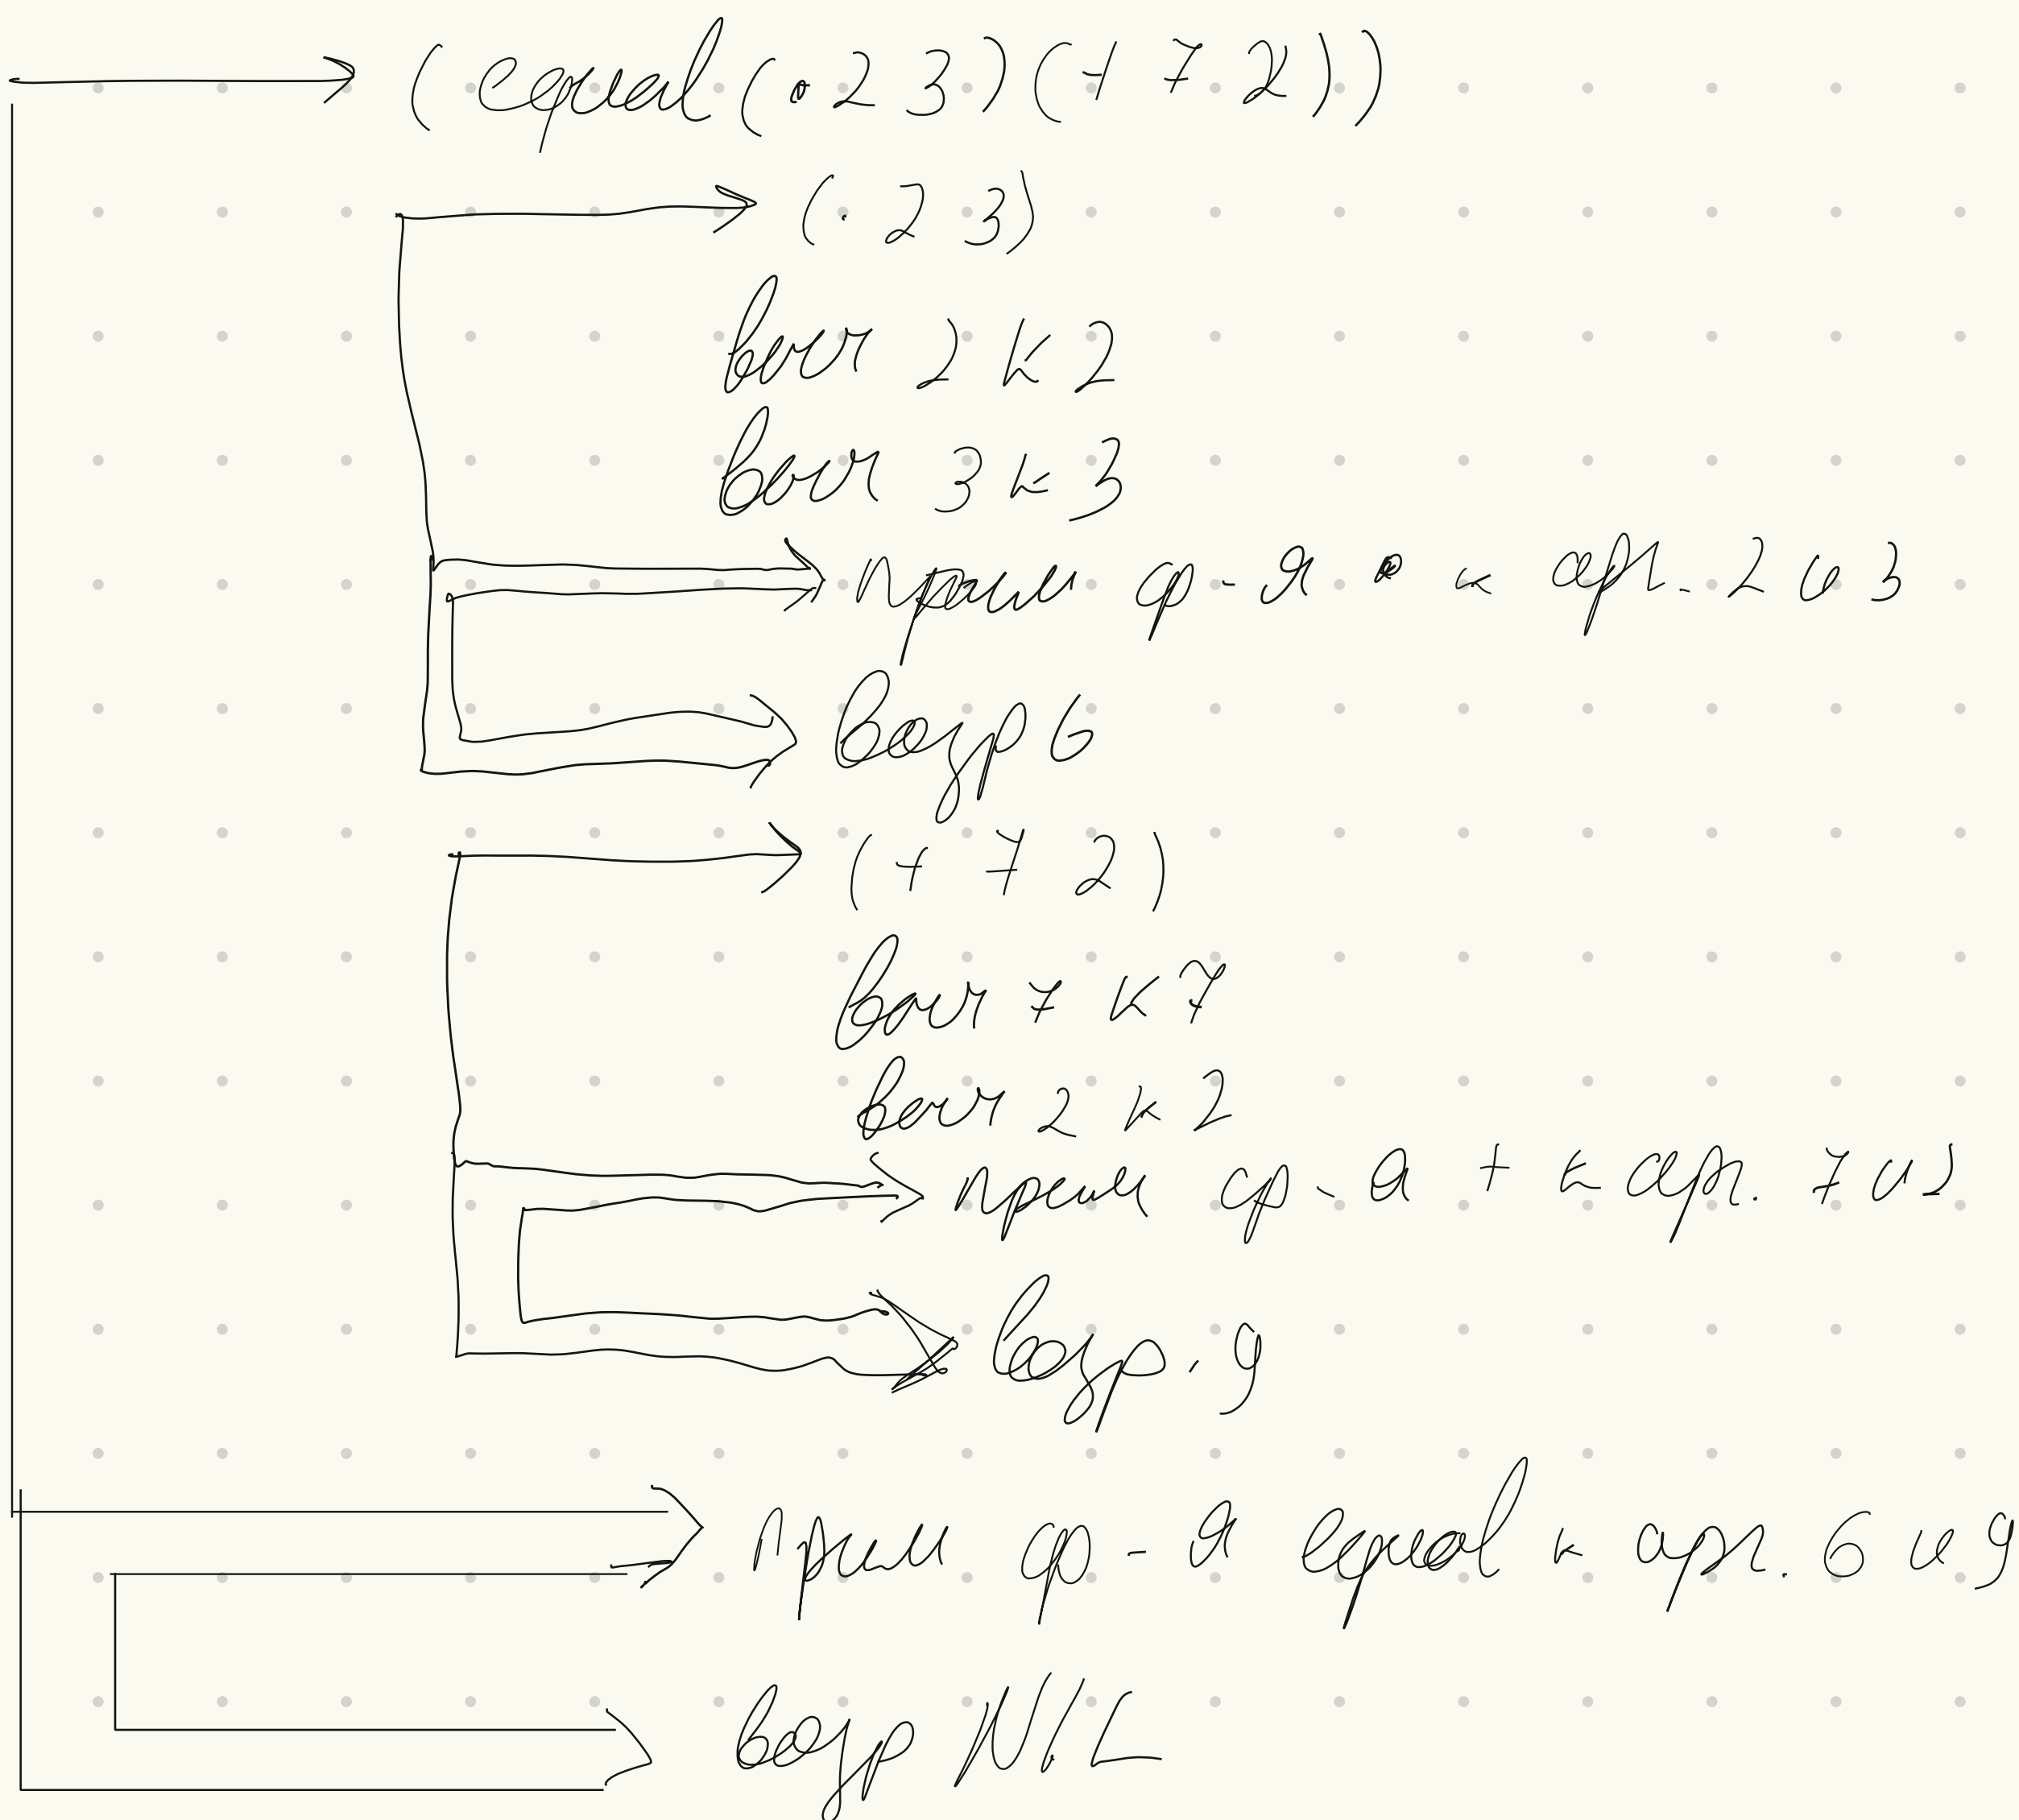 (equal (· 2 3) (+ 7 2)))
(· 2 3)
выч 2 к 2
выч 3 к 3
прим ф-я • к арг. 2 и 3
возвр 6
(+ 7 2)
выч 7 к 7
выч 2 к 2
прим ф-я + к арг. 7 и 2
возвр. 9
прим ф-я equal к арг. 6 и 9
возвр NIL